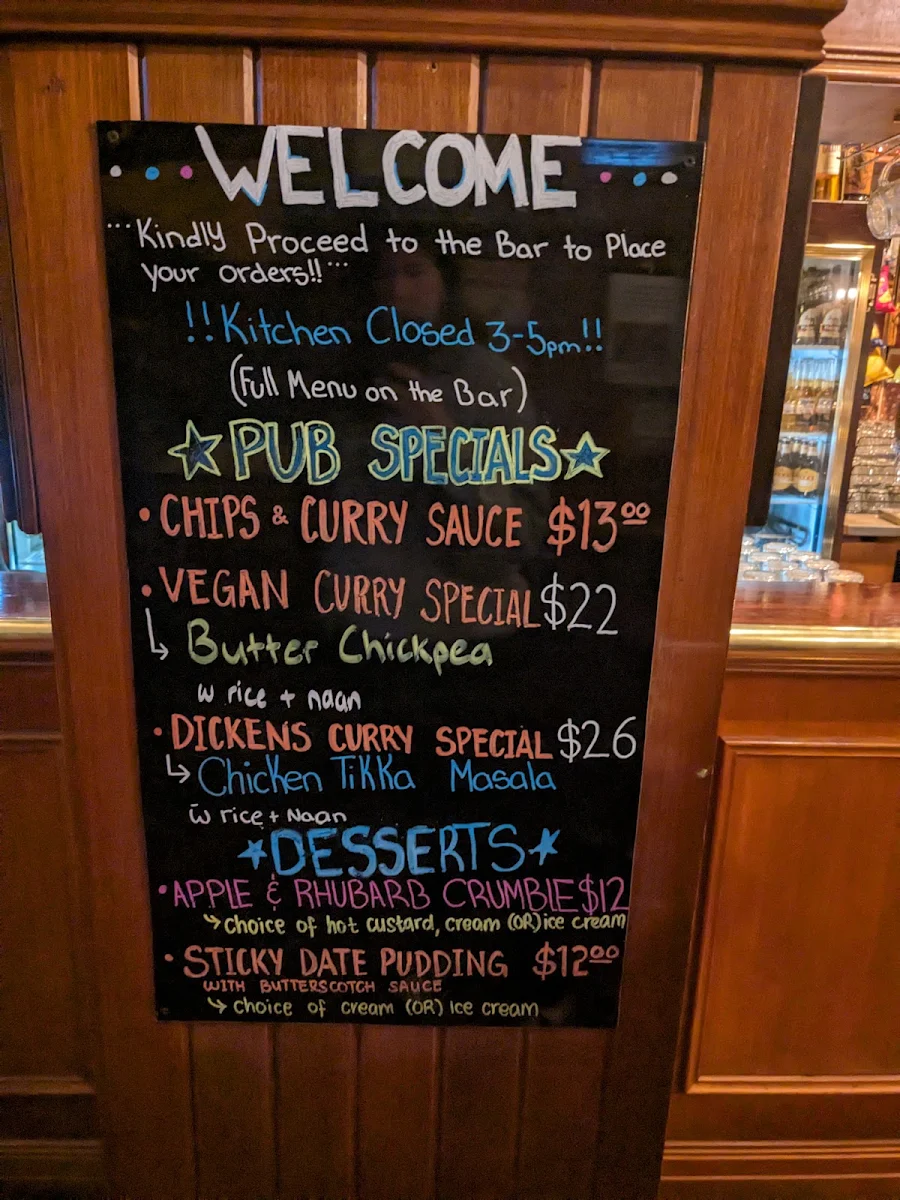 WELCOME
...Kindly Proceed to the Bar to Place
your orders!!...
!!Kitchen Closed 3-5pm!!
(Full Menu on the Bar)
PUB SPECIALS
• CHIPS & CURRY SAUCE $13.00
• VEGAN CURRY SPECIAL $22
↳ Butter Chickpea
w rice + naan
• DICKENS CURRY SPECIAL $26
↳ Chicken Tikka Masala
w̄ rice + Naan
DESSERTS
• APPLE & RHUBARB CRUMBLE $12
↳ choice of hot custard, cream (OR) ice cream
• STICKY DATE PUDDING $12.00
WITH BUTTERSCOTCH SAUCE
↳ choice of cream (OR) ice cream